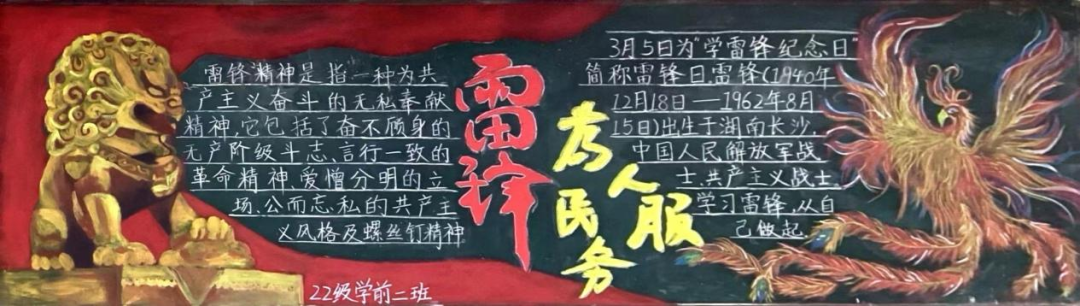 雷锋精神是指一种为共
产主义奋斗的无私奉献
精神,它包括了奋不顾身的
无产阶级斗志、言行一致的
革命精神、爱憎分明的立
场、公而忘私的共产主
义风格及螺丝钉精神
22级学前二班
雷锋
为人民服务
3月5日为"学雷锋纪念日"
简称雷锋日.雷锋(1940年
12月18日—1962年8月
15日)出生于湖南长沙,
中国人民解放军战
士、共产主义战士
学习雷锋,从自
己做起